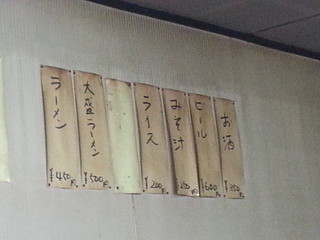 ラーメン
¥450円
大盛ラーメン
¥500円
ライス
¥200円
みそ汁
ビール
¥600円
お酒
¥350